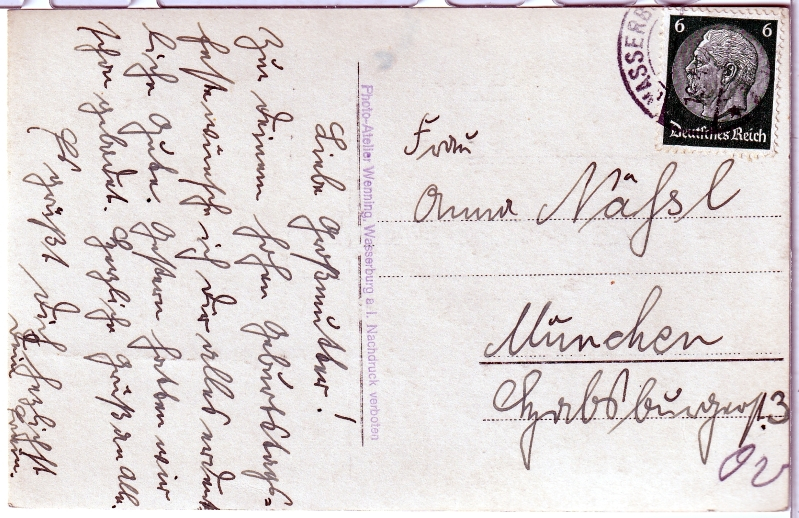 Liebe Großmutter!
Zu Deinem hohen Geburtstags=
feste wünsche ich Dir alles erdenk
liche Gute. Gestern hatten wir
schon gebadet. Herzliche Grüße an Alle.
Es grüßt Dich herzlichst
Dein
Photo-Atelier Wenning, Wasserburg a. I. Nachdruck verboten
WASSERB
6 6
Deutsches Reich
Frau
Anna Näßl
München
Habsburgerst. 3